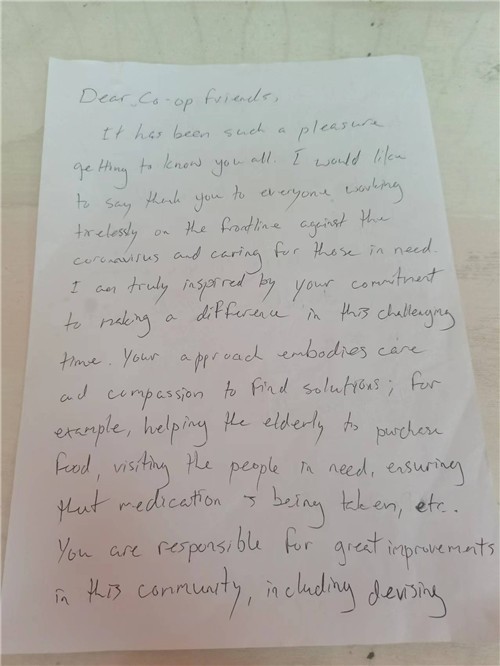 Dear Co-op friends,
It has been such a pleasure
getting to know you all. I would like
to say thank you to everyone working
tirelessly on the frontline against the
coronavirus and caring for those in need.
I am truly inspired by your commitment
to making a difference in this challenging
time. Your approach embodies care
and compassion to find solutions; for
example, helping the elderly to purchase
food, visiting the people in need, ensuring
that medication is being taken, etc.
You are responsible for great improvements
in this community, including devising